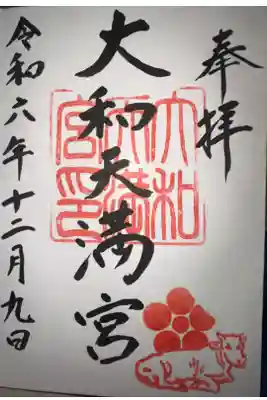 奉拝
大和天満宮
大和天満宮印
令和六年十二月九日